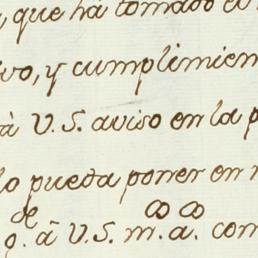 , que há tomado el
ivo, y cumplimien
à V.S. aviso en la p
lo pueda poner en
g.de à V.S. m.os a.os com